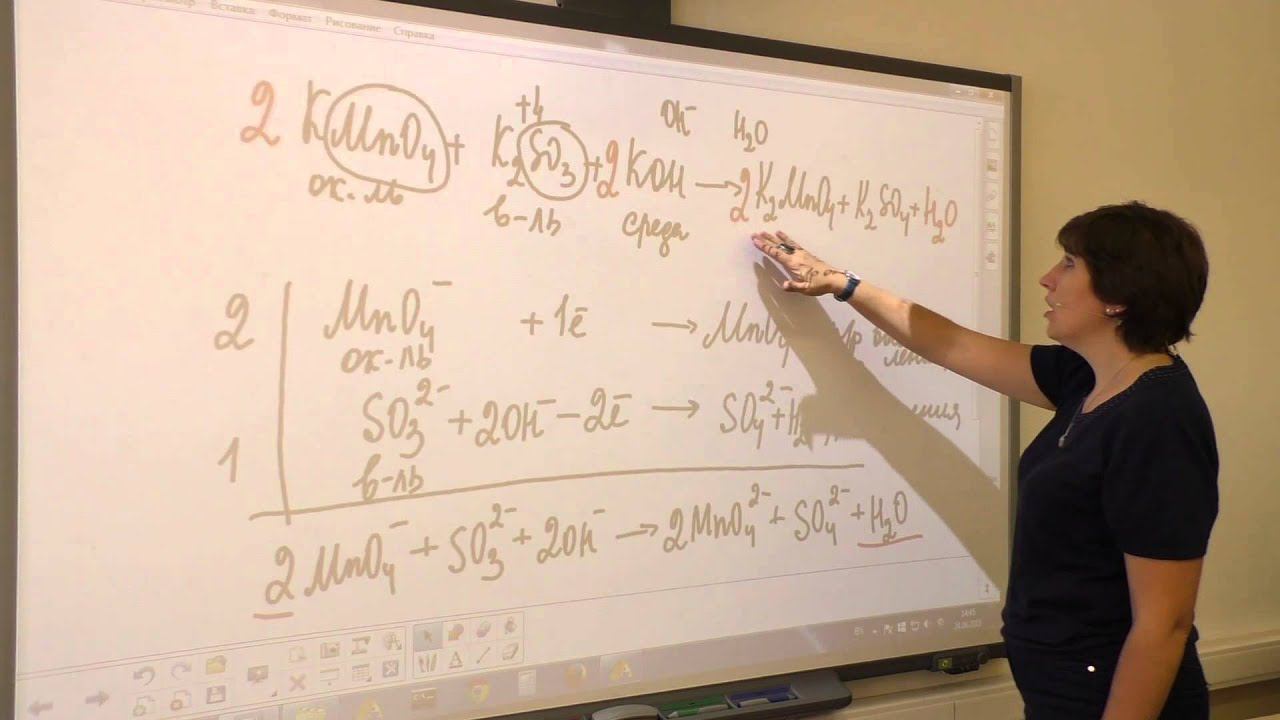 Вставка Формат Рисование Справка
+4 OH⁻ H₂O
2 KMnO₄ + K₂SO₃ + 2KOH → 2K₂MnO₄ + K₂SO₄ + H₂O
ок-ль в-ль среда
2 MnO₄⁻ + 1ē → MnO₄
ок-ль
SO₃²⁻ + 2OH⁻ - 2ē → SO₄²⁻ + H₂
1
в-ль
2MnO₄⁻ + SO₃²⁻ + 2OH⁻ → 2MnO₄²⁻ + SO₄²⁻ + H₂O
14:45
EN